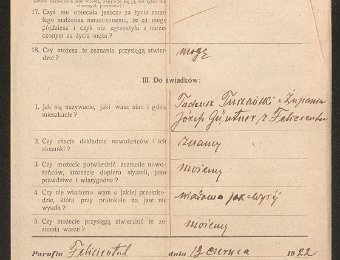 17. Czyś nie obiecała jeszcze za życia zmar-
łego małżonka narzeczonemu, że za niego
pójdziesz i czyś nie zgrzeszyła z narze-
czonym za życia męża?
18. Czy możesz te zeznania przysięgą stwier-
dzić?
mogę
III. Do świadków:
1. Jak się nazywacie, jaki wasz stan i gdzie
mieszkacie?
Tadeusz z Żupania
Józef Güntner, z Felicienthal
2. Czy znacie dokładnie nowożeńców i ich
stosunki?
znamy
3. Czy możecie potwierdzić zeznania nowo-
żeńców, któreście dopiero słyszeli, jako
prawdziwe i wiarygodne?
możemy
4. Czy nie wiadomo wam o jakiej przeszko-
dzie, która przy protokole na jaw nie
wyszła?
wiadomo jak wyżej
5. Czy możecie przysięgą stwierdzić te ze-
znania wasze?
możemy
Parafia Felicienthal dnia 13 czerwca 1922